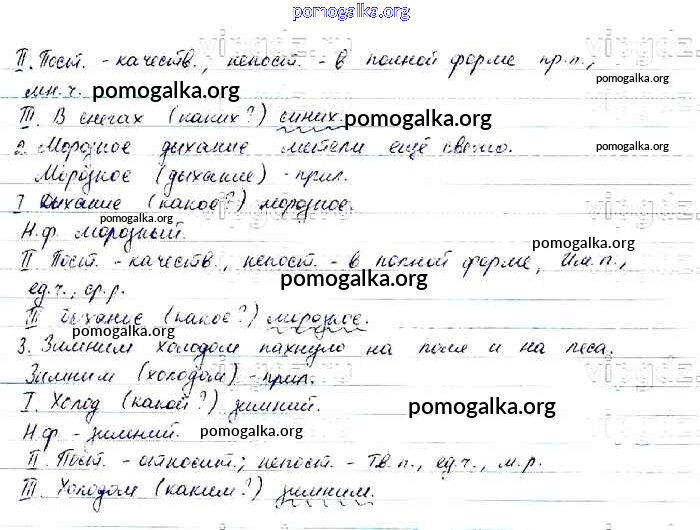 pomogalka.org
II. Пост. - качеств., непост. - в полной форме пр.п.,
pomogalka.org
мн.ч. pomogalka.org
III. В снегах (каких?) синих. pomogalka.org
2. Морозное дыхание метели ещё свежо.
pomogalka.org
Морозное (дыхание) - прил.
I Дыхание (какое?) морозное.
pomogalka.org
Н.ф. морозный.
pomogalka.org
II Пост. - качеств., непост. - в полной форме, Им.п.,
pomogalka.org
ед.ч., ср.р.
III Дыхание (какое?) морозное.
pomogalka.org
3. Зимним холодом пахнуло на поля и на леса.
Зимним (холодом) - прил.
I. Холод (какой?) зимний.
pomogalka.org
Н.ф. - зимний. pomogalka.org
II. Пост. - относит.; непост. - Тв.п., ед.ч., м.р.
III. Холодом (каким?) зимним.
pomogalka.org
vipgdz.ru